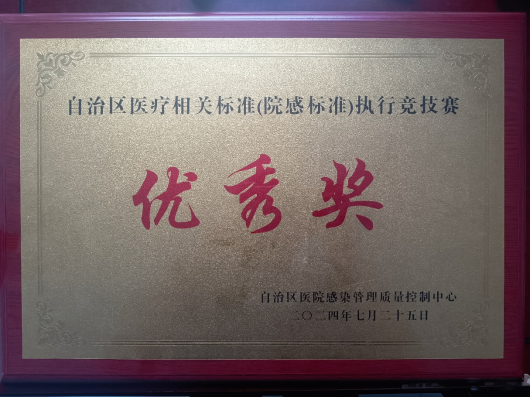 自治区医疗相关标准(院感标准)执行竞技赛
优秀奖
自治区医院感染管理质量控制中心
二〇二四年七月二十五日